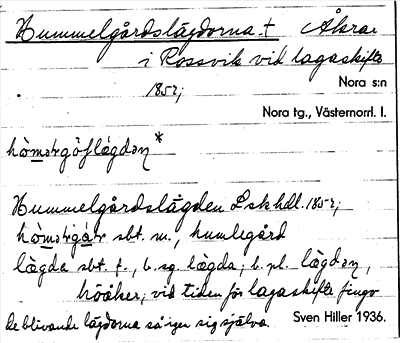 Hummelgårdslägdorna † Åkrar
i Rossvik vid lagaskifte
1852;
Nora s:n
Nora tg., Västernorrl. l.
Hummelgårdslägden Lskhdl. 1852;
sbt. m., humlegård
lägda sbt. f., b. sg. lägda; b. pl.
höåker; vid tiden för lagaskifte fingo
de blivande lägdorna så igen sig själva. Sven Hiller 1936.